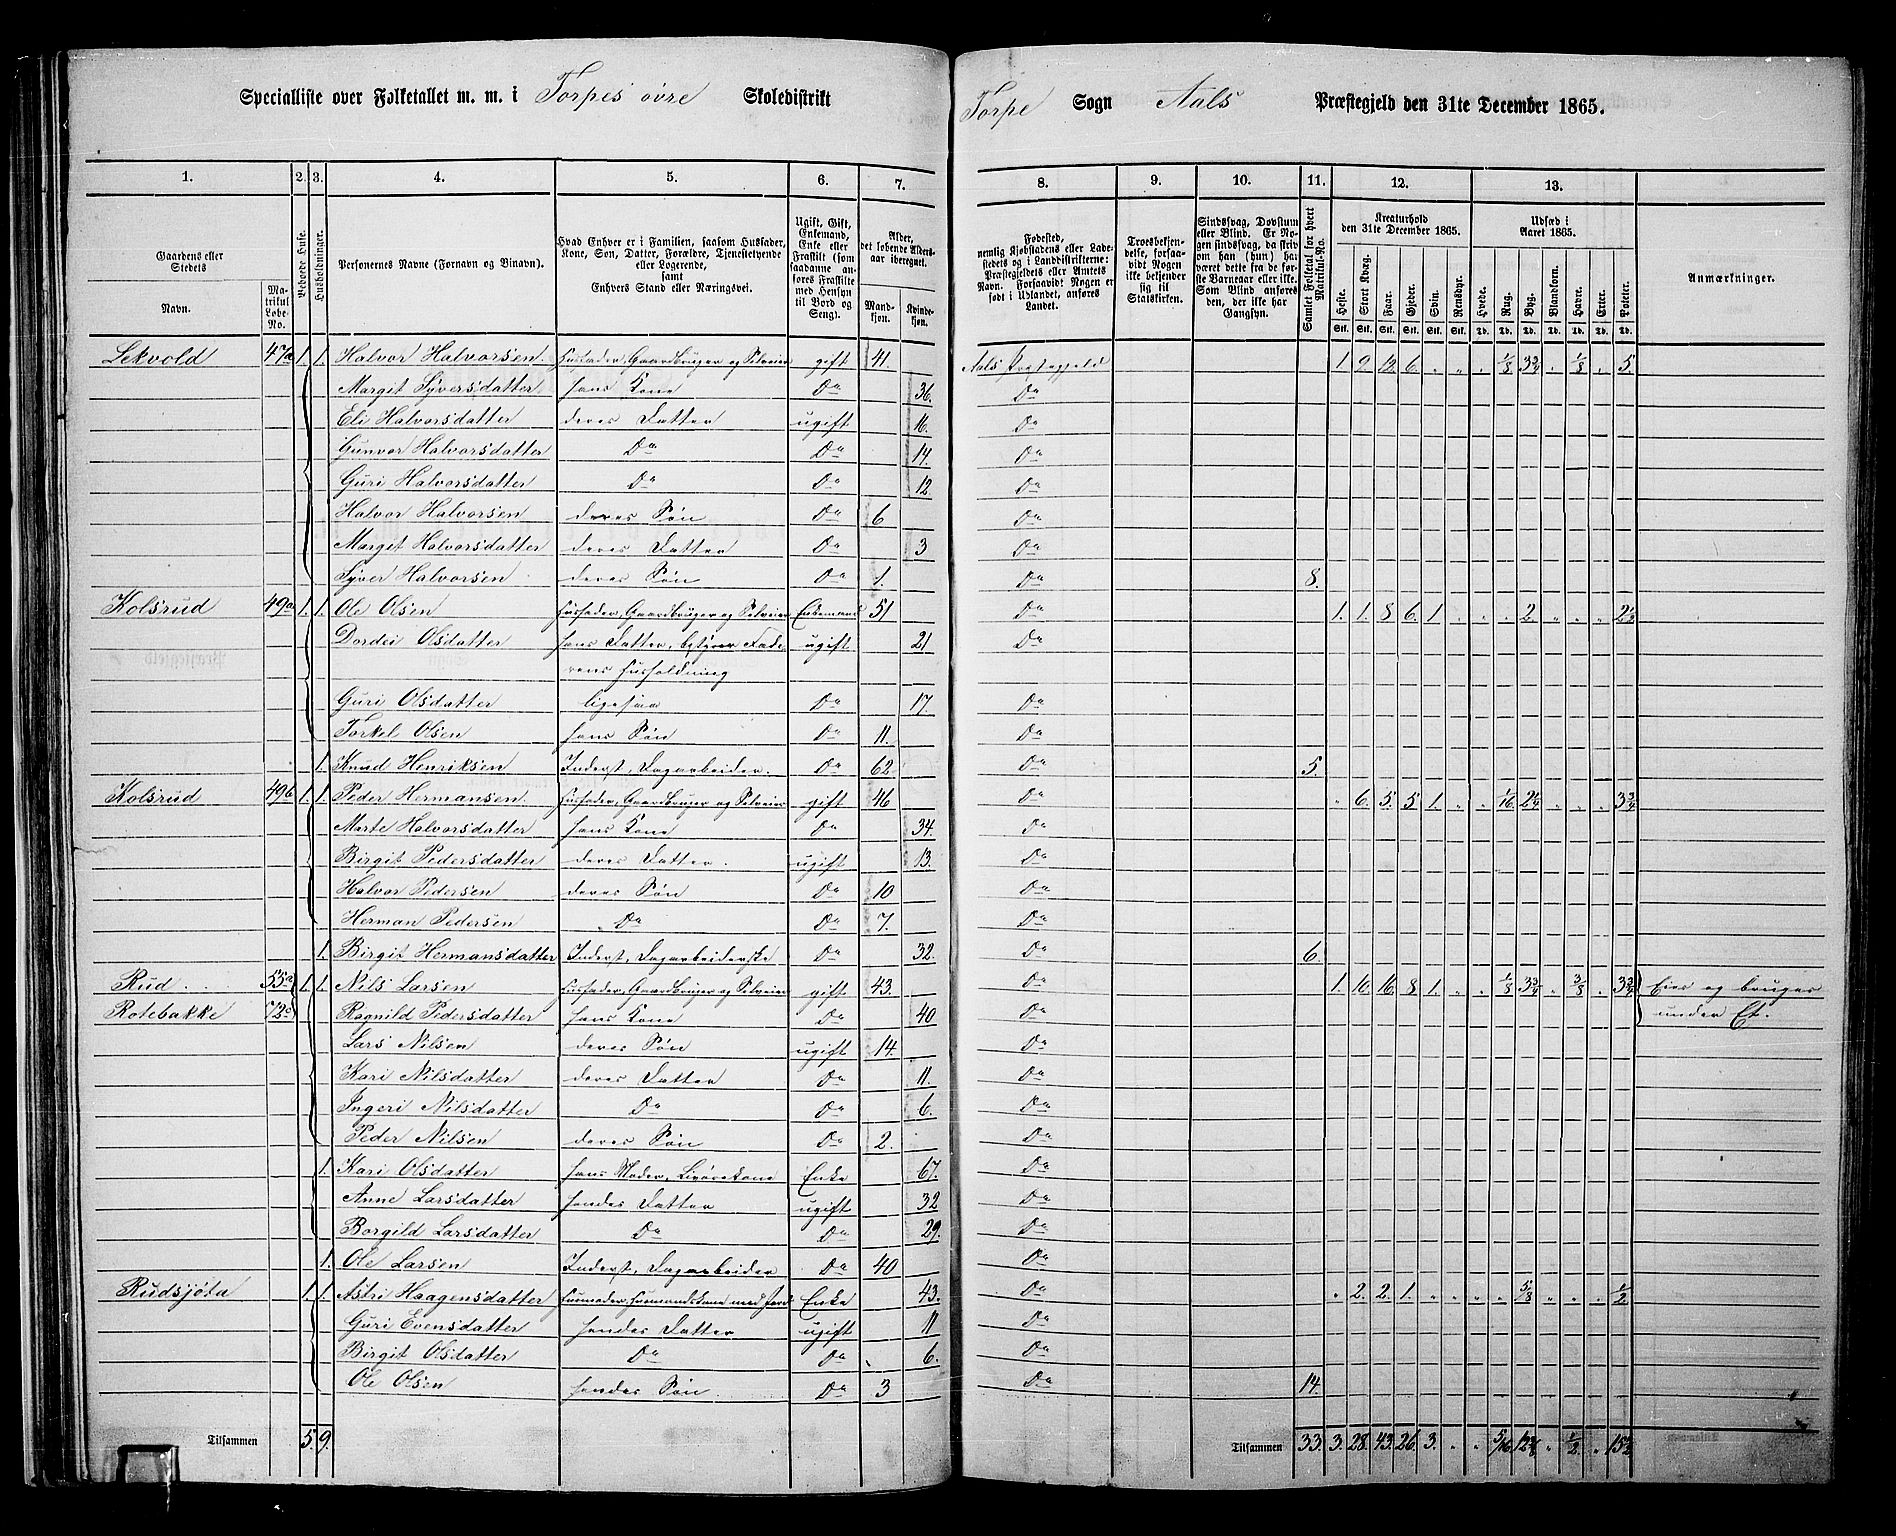 Specialliste over Folketallet m. m. i Torpes övre Skoledistrikt Torpe Sogn Aals Præstegjeld den 31te December 1865.
1. 2. 3. 4. 5. 6. 7. 8. 9. 10. 11. 12. 13.
Gaardens eller Stedets
Navn. Matrikul Løbe-No.
Beboede Huse.
Husholdninger.
Personernes Navne (Fornavn og Binavn).
Hvad Enhver er i Familien, saasom Husfader, Kone, Søn, Datter, Forældre, Tjenestetyende eller Logerende, samt Enhvers Stand eller Næringsvei.
Ugift, Gift, Enkemand, Enke eller Fraskilt (som saadanne anføres Fraskilte med Hensyn til Bord og Seng).
Alder, det løbende Alders-aar iberegnet.
Mandkjøn. Kvindekjøn.
Fødested, nemlig Kjøbstadens eller Ladestedets og i Landdistrikterne: Præstegjeldets eller Amtets Navn. Forsaavidt Nogen er født i Udlandet, anføres Landet.
Troesbekjendelse, forsaavidt Nogen ikke bekjender sig til Statskirken.
Sindssvag, Døvstum eller Blind. Er Nogen sindssvag, da skrives om han (hun) har været dette fra de første Barneaar eller ikke. Som Blind anføres den, der ikke har Gangsyn.
Samlet Folketal for hvert Matrikul-No.
Kreaturhold den 31te December 1865.
Heste. Stort Kvæg. Faar. Gjeder. Svin. Rensdyr.
Udsæd i Aaret 1865.
Hvede. Rug. Byg. Blandkorn. Havre. Erter. Poteter.
Anmærkninger.
Lekvold 47a 1. 1. Halvor Halvorsen. Husfader, Gaardbruger og Selveier gift 41. Aals Præstegjeld 1. 9. 12. 6. " " " 1/8 3 3/4 " 1/8 " 5
Margit Syversdatter hans Kone Do 36. Do
Eli Halvorsdatter deres Datter ugift 16. Do
Gunvor Halvorsdatter Do Do 14. Do
Guri Halvorsdatter Do Do 12 Do
Halvor Halvorsen deres Søn Do 6 Do
Margit Halvorsdatter deres Datter Do 3 Do
Syver Halvorsen deres Søn Do 1. Do 8.
Kolsrud 49a 1. 1. Ole Olsen Husfader, Gaardbruger og Selveier Enkemand 51 Do 1. 1. 8 6. 1 " " " 2. " " "
Dordei Olsdatter hans Datter, bestyrer Fade- ugift 21 Do
rens Husholdning
Guri Olsdatter ligesaa Do 17. Do
Torkel Olsen hans Søn Do 11. Do
1. Knud Henriksen Inderst, Dagarbeider. Do 62. Do 5.
Kolsrud 49b 1. 1. Peder Hermansen. Husfader, Gaardbruger og Selveier gift 46 Do " 6. 5. 5 1. " " 1/16 " " " 3 3/4
Marte Halvorsdatter hans Kone Do 34. Do
Birgit Pedersdatter deres Datter. ugift 13. Do
Halvor Pedersen deres Søn Do 10 Do
Herman Pedersen Do Do 7. Do
1. Birgit Hermansdatter Inderst, Dagarbeiderske Do 32. Do 6.
Rud 55a 1. 1. Nils Larsen Husfader, Gaardbruger og Selveier gift 43. Do 1. 10. 16. 8 1. " " 1/8 3 3/4 " 3/8 " 3 3/4 Eies og bruges
Rotebakke 73c Ragnild Pedersdatter hans Kone Do 40 Do under Et.
Lars Nilsen deres Søn ugift 14. Do
Kari Nilsdatter deres Datter Do 11. Do
Ingeri Nilsdatter Do Do 6. Do
Peder Nilsen deres Søn Do 2. Do
1. Kari Olsdatter hans Moder, Livørekone Enke 67. Do
Anne Larsdatter hendes Datter ugift 32 Do
Borgild Larsdatter Do Do 29. Do
1. Ole Larsen Inderst, Dagarbeider Do 40 Do
Rudsjøta 1. 1. Astri Haagensdatter Husmoder, Husmandskone med Jord Enke 43. Do " 2. 2. 1. " " " " 5/8 " " " 1/2
Guri Evensdatter hendes Datter ugift 11 Do
Birgit Olsdatter Do Do 6. Do
Ole Olsen hendes Søn. Do 3 Do 14.
Tilsammen 5. 9. Tilsammen 33. 3. 28. 43. 26. 3. " " 5/16 " 1/2 "